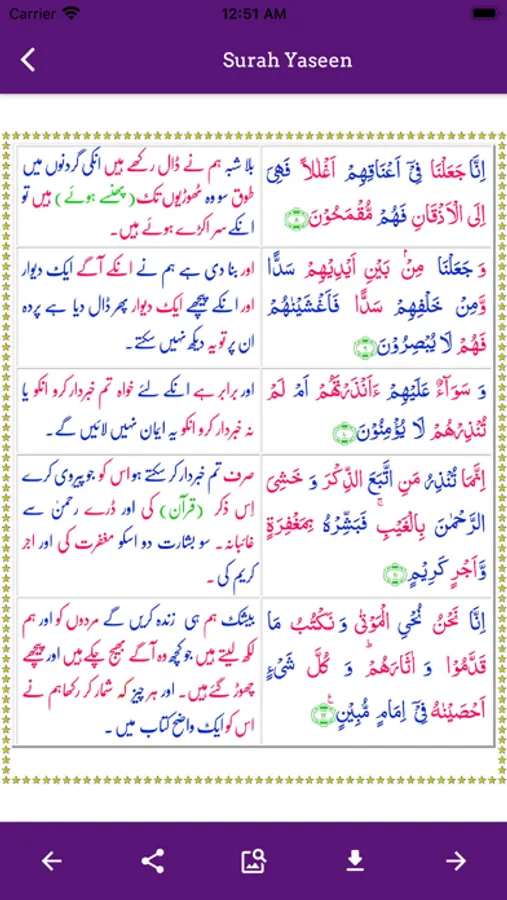 Carrier 12:51 AM
Surah Yaseen
اِنَّا جَعَلْنَا فِیْۤ اَعْنَاقِهِمْ اَغْلٰلًا فَهِیَ
اِلَی الْاَذْقَانِ فَهُمْ مُّقْمَحُوْنَ ﴿۸﴾
بلا شبہ ہم نے ڈال رکھے ہیں انکی گردنوں میں
طوق سو وہ ٹھوڑیوں تک (پھنسے ہوئے) ہیں تو
انکے سر اکڑے ہوئے ہیں۔
وَ جَعَلْنَا مِنْۢ بَیْنِ اَیْدِیْهِمْ سَدًّا
وَّمِنْ خَلْفِهِمْ سَدًّا فَاَغْشَیْنٰهُمْ
فَهُمْ لَا یُبْصِرُوْنَ ﴿۹﴾
اور بنا دی ہے ہم نے انکے آگے ایک دیوار
اور انکے پیچھے ایک دیوار پھر ڈال دیا ہے پردہ
ان پر تو یہ دیکھ نہیں سکتے۔
وَ سَوَآءٌ عَلَیْهِمْ ءَاَنْذَرْتَهُمْ اَمْ لَمْ
تُنْذِرْهُمْ لَا یُؤْمِنُوْنَ ﴿۱۰﴾
اور برابر ہے انکے لئے خواہ تم خبردار کرو انکو یا
نہ خبردار کرو انکو یہ ایمان نہیں لائیں گے۔
اِنَّمَا تُنْذِرُ مَنِ اتَّبَعَ الذِّكْرَ وَ خَشِیَ
الرَّحْمٰنَ بِالْغَیْبِ ۚ فَبَشِّرْهُ بِمَغْفِرَةٍ
وَّ اَجْرٍ كَرِیْمٍ ﴿۱۱﴾
صرف تم خبردار کر سکتے ہو اس کو جو پیروی کرے
اِس ذکر (قرآن) کی اور ڈرے رحمنٰ سے
غائبانہ۔ سو بشارت دو اسکو مغفرت کی اور اجر
کریم کی۔
اِنَّا نَحْنُ نُحْیِ الْمَوْتٰی وَ نَكْتُبُ مَا
قَدَّمُوْا وَ اٰثَارَهُمْ ؕ وَ كُلَّ شَیْءٍ
اَحْصَیْنٰهُ فِیْۤ اِمَامٍ مُّبِیْنٍ ﴿۱۲﴾
بیشک ہم ہی زندہ کریں گے مردوں کو اور ہم
لکھ لیتے ہیں جو کچھ وہ آگے بھیج چکے ہیں اور پیچھے
چھوڑ گئے ہیں۔ اور ہر چیز کہ شمار کر رکھا ہم نے
اس کو ایک واضح کتاب میں۔